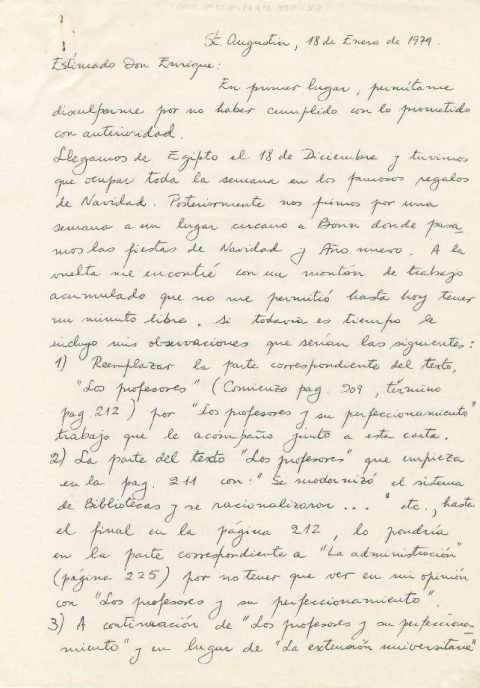 St. Augustin, 18 de Enero de 1979.
Estimado Don Enrique:
En primer lugar, permítame
disculparme por no haber cumplido con lo prometido
con anterioridad.
Llegamos de Egipto el 18 de Diciembre y tuvimos
que ocupar toda la semana en los famosos regalos
de Navidad. Posteriormente nos fuimos por una
semana a un lugar cercano a Bonn donde pasa-
mos las fiestas de Navidad y Año nuevo. A la
vuelta me encontré con un montón de trabajo
acumulado que no me permitió hasta hoy tener
un minuto libre. Si todavía es tiempo le
incluyo mis observaciones que serían las siguientes:
1) Reemplazar la parte correspondiente del texto,
"Los profesores" (Comienzo pag. 209, término
pag. 212) por "Los profesores y su perfeccionamiento"
trabajo que le acompaño junto a esta carta.
2) La parte del texto "Los profesores" que empieza
en la pag. 211 con: "Se modernizó el sistema
de Bibliotecas y se racionalizaron ..." etc., hasta
el final en la página 212, lo pondría
en la parte correspondiente a "La administración"
(página 225) por no tener que ver en mi opinión
con "Los profesores y su perfeccionamiento".
3) A continuación de "Los profesores y su perfecciona-
miento" y en lugar de "La extensión universitaria"